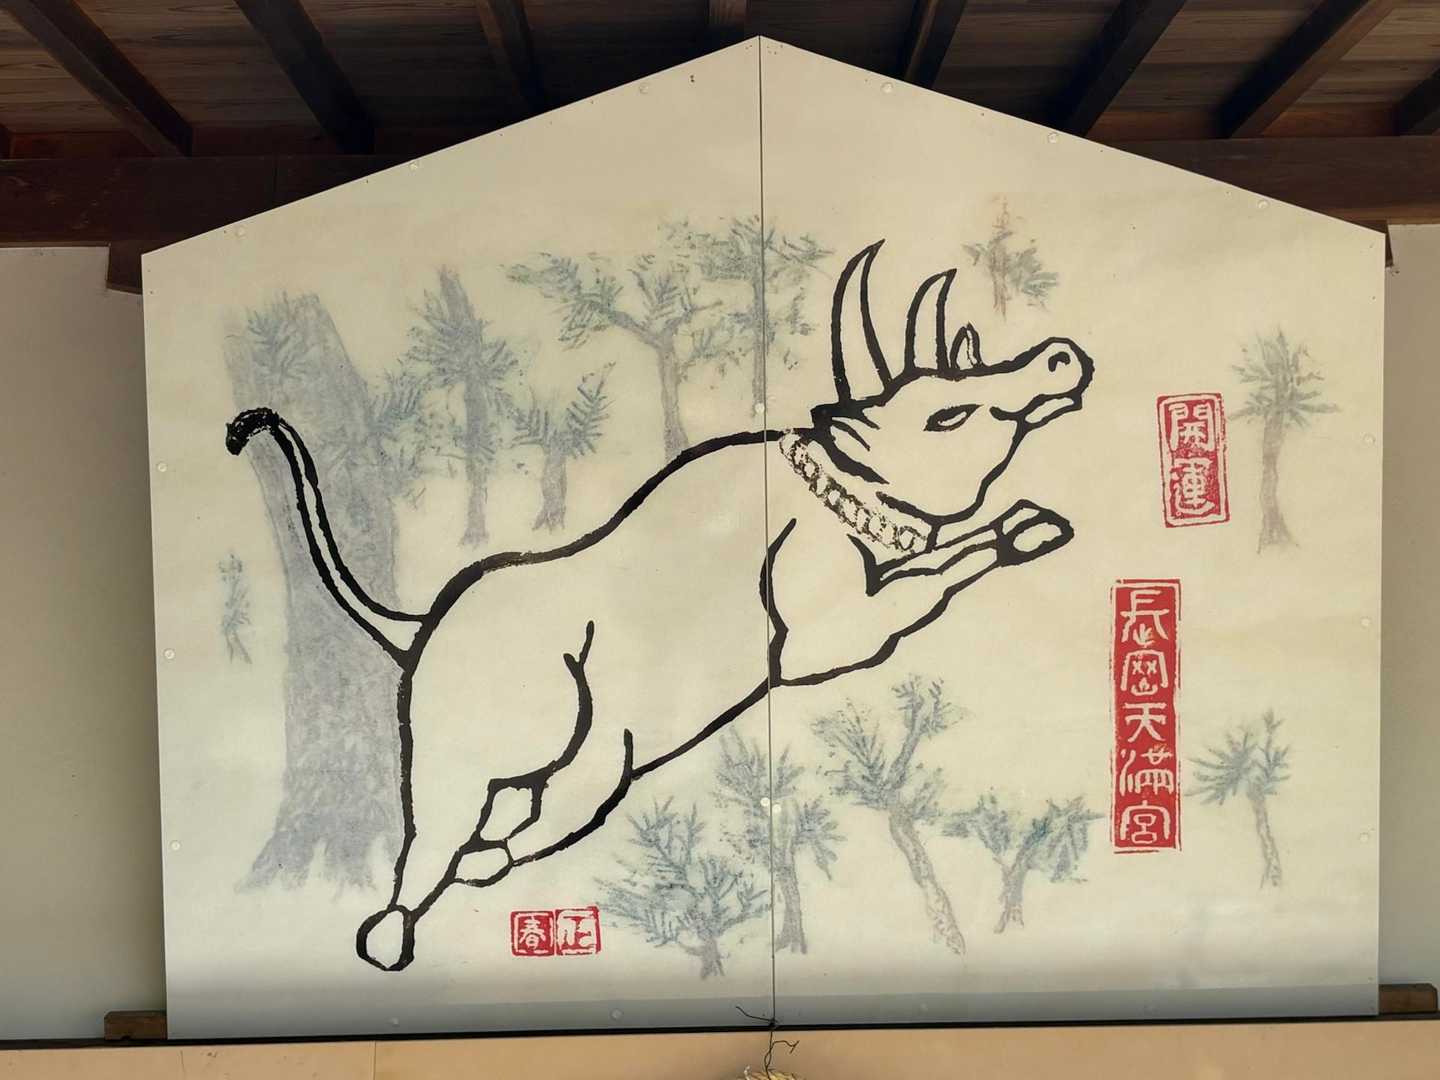 開運
長岡天満宮
正春